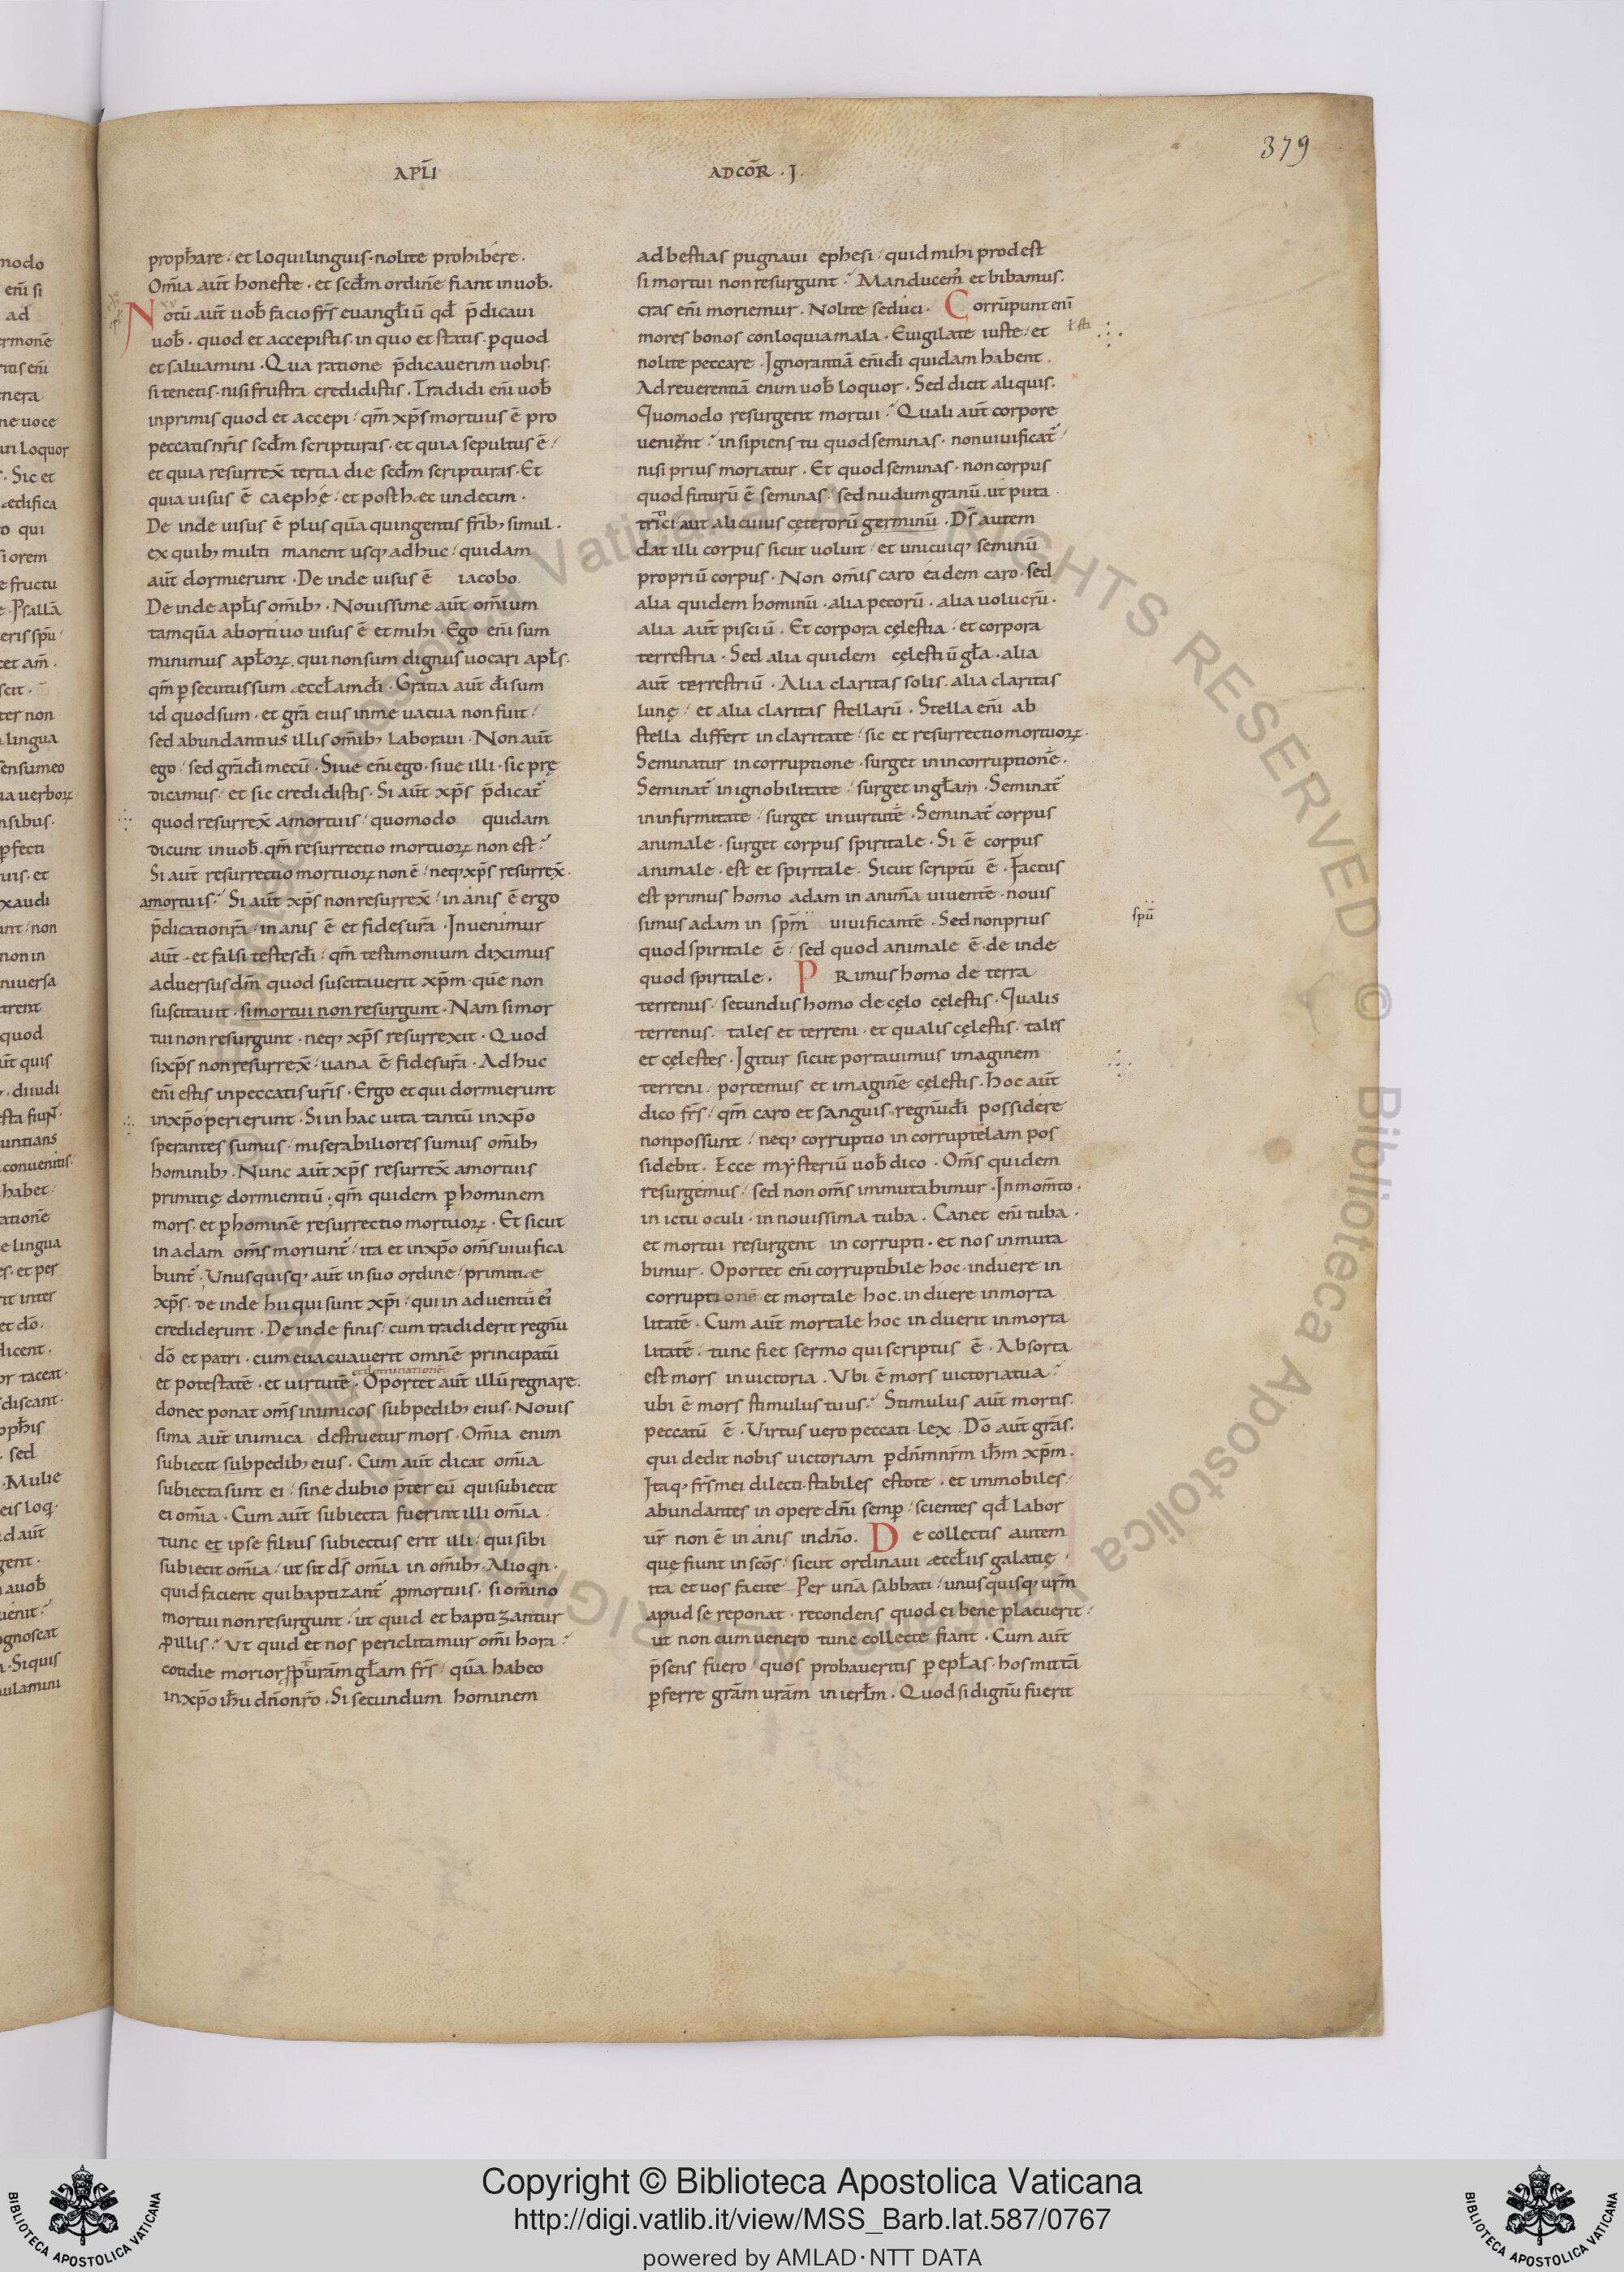 379
APƚI
AD COR̄ · I ·
proph̄are · et loqui linguis · nolite prohibere ·
Om̄ia aut̄ honeste · et scd̄m ordinē fiant in uob̄ ·
Notū aut̄ uob̄ facio fr̄s euangƚiū qd̄ p̄dicaui
uob̄ · quod et accepistis · in quo et statis · ꝑ quod
et saluamini · Qua ratione p̄dicauerim uobis ·
si tenetis · nisi frustra credidistis · Tradidi eni᷒ uob̄
inprimis quod et accepi · qm̄ xp̄s mortuus ē pro
peccatis nr̄is scd̄m scripturas · et quia sepultus ē ·
et quia resurrex̄ tertia die scd̄m scripturas · Et
quia uisus ē caephę · et post hæc undecim ·
De inde uisus ē plus quā quingentis fr̄ib; simul ·
ex quib; multi manent usq; adhuc · quidam
aut̄ dormierunt · De inde uisus ē iacobo
De inde apƚis om̄ib; · Nouissime aut̄ om̄ium
tamquā abortiuo uisus ē et mihi · Ego enī sum
minimus apƚoꝝ · qui non sum dignus uocari apƚs ·
qm̄ ꝑsecutus sum æccƚam dī · Gratia aut̄ dī sum
id quod sum · et grā eius in me uacua non fuit ·
sed abundantius illis om̄ib; laboraui · Non aut̄
ego · sed grā dī mecū · Siue enī ego · siue illi · sic prę
dicamus · et sic credidistis · Si aut̄ xp̄s p̄dicat᷒
quod resurrex̄ a mortuis · quomodo quidam
dicunt in uob̄ · qm̄ resurrectio mortuoꝝ non est ?
Si aut̄ resurrectio mortuoꝝ non ē · neq; xp̄s resurrex̄ ·
a mortuis ? Si aut̄ xp̄s non resurrex̄ · inanis ē ergo
p̄dicatio nr̄a · inanis ē et fides ur̄a · Inuenimur
aut̄ · et falsi testes dī · qm̄ testimonium diximus
aduersus dm̄ quod suscitauerit xp̄m · quē non
suscitauit · si mortui non resurgunt · Nam si mor
tui non resurgunt · neq; xp̄s resurrexit · Quod
si xp̄s non resurrex̄ · uana ē fides ur̄a · Adhuc
enī estis in peccatis ur̄is · Ergo et qui dormierunt
in xp̄o perierunt · Si in hac uita tantū in xp̄o
sperantes sumus · miserabiliores sumus om̄ib;
hominib; · Nunc aut̄ xp̄s resurrex̄ a mortuis
primitię dormientiū · qm̄ quidem ꝑ hominem
mors · et ꝑ hominē resurrectio mortuoꝝ · Et sicut
in adam om̄s moriunt᷒ · ita et in xp̄o om̄s uiuifica
bunt᷒ · Unusquisq; aut̄ in suo ordine · primitiæ
xp̄s · de inde hii qui sunt xp̄i · qui in aduentū ei᷒
crediderunt · De inde finis · cum tradiderit regnū
dō et patri · cum euacuauerit omnē principatū
et dominationē
et potestatē · et uirtutē · Oportet aut̄ illū regnare ·
donec ponat om̄s inimicos sub pedib; eius · Nouis
sima aut̄ inimica destruetur mors · Om̄ia enim
subiecit sub pedib; eius · Cum aut̄ dicat om̄ia
subiecta sunt ei · sine dubio p̄ter eū qui subiecit
ei om̄ia · Cum aut̄ subiecta fuerint illi om̄ia ·
tunc et ipse filius subiectus erit illi · qui sibi
subiecit om̄ia · ut sit ds̄ om̄ia in om̄ib; · Alioqn̄ ·
quid facient qui baptizant᷒ ꝓ mortuis · si om̄ino
mortui non resurgunt · ut quid et baptizantur
ꝓ illis ? Ut quid et nos periclitamur om̄i hora ?
cotidie morior ꝑ ur̄am gƚam fr̄s · quā habeo
in xp̄o ihū dn̄o nr̄o · Si secundum hominem
ad bestias pugnaui ephesi · quid mihi prodest
si mortui non resurgunt ? Manducem᷒ et bibamus ·
cras enī moriemur · Nolite seduci · Corrūpunt enī
mores bonos conloquia mala · Euigilate iuste · et
nolite peccare · Ignorantiā enī dī quidam habent ·
Ad reuerentiā enim uob̄ loquor · Sed dicit aliquis ·
Quomodo resurgent mortui ? Quali aut̄ corpore
uenient ? insipiens tu quod seminas · non uiuificat᷒
nisi prius moriatur · Et quod seminas · non corpus
quod futurū ē seminas · sed nudum granū · ut puta
tritici aut alicuius cęterorū germinū · Ds̄ autem
dat illi corpus sicut uoluit · et unicuiq; seminū
propriū corpus · Non om̄is caro eadem caro · sed
alia quidem hominū · alia pecorū · alia uolucrū ·
alia aut̄ pisciū · Et corpora cęlestia · et corpora
terrestria · Sed alia quidem cęlestiū gƚa · alia
aut̄ terrestriū · Alia claritas solis · alia claritas
lunę · et alia claritas stellarū · Stella enī ab
stella differt in claritate · sic et resurrectio mortuoꝝ ·
Seminatur in corruptione · surget in incorruptionē ·
Seminat᷒ in ignobilitate · surget in gƚam · Seminat᷒
in infirmitate · surget in uirtutē · Seminat᷒ corpus
animale · surget corpus spiritale · Si ē corpus
animale · est et spiritale · Sicut scriptū ē · Factus
est primus homo adam in anim̄a uiuentē · nouis
simus adam in spm̄ uiuificantē · Sed non prius
spū
quod spiritale ē · sed quod animale ē · de inde
quod spiritale · PRimus homo de terra
terrenus · secundus homo de cęlo cęlestis · Qualis
terrenus · tales et terreni · et qualis cęlestis · tales
et cęlestes · Igitur sicut portauimus imaginem
terreni · portemus et imaginē cęlestis · Hoc aut̄
dico fr̄s · qm̄ caro et sanguis regnū dī possidere
non possunt · neq; corruptio incorruptelam pos
sidebit · Ecce mysteriū uob̄ dico · Om̄s quidem
resurgemus · sed non om̄s immutabimur · In mom̄to ·
in ictu oculi · in nouissima tuba · Canet enī tuba ·
et mortui resurgent incorrupti · et nos inmuta
bimur · Oportet enī corruptibile hoc · induere in
corruptionē · et mortale hoc · induere inmorta
litatē · Cum aut̄ mortale hoc induerit inmorta
litatē · tunc fiet sermo qui scriptus ē · Absorta
est mors in uictoria · Ubi ē mors uictoria tua ?
ubi ē mors stimulus tuus ? Stimulus aut̄ mortis ·
peccatū ē · Uirtus uero peccati · lex · Dō aut̄ grās ·
qui dedit nobis uictoriam ꝑ dn̄m nr̄m ihm̄ xp̄m ·
Itaq; fr̄s mei dilecti · stabiles estote · et immobiles ·
abundantes in opere dn̄i semꝑ · scientes qd̄ labor
ur̄ non ē inanis in dn̄o · De collectis autem
quę fiunt in scōs · sicut ordinaui æccƚiis galatię ·
ita et uos facite · Per unā sabbati · unusquisq; urm̄
apud se reponat · recondens quod ei bene placuerit ·
ut non cum uenero tunc collecte fiant · Cum aut̄
p̄sens fuero · quos probaueritis ꝑ epƚas · hos mittā
ꝑferre grām urām in ierƚm · Quod si dignū fuerit
Copyright © Biblioteca Apostolica Vaticana
http://digi.vatlib.it/view/MSS_Barb.lat.587/0767
powered by AMLAD·NTT DATA
BIBLIOTECA APOSTOLICA VATICANA
BIBLIOTECA APOSTOLICA VATICANA